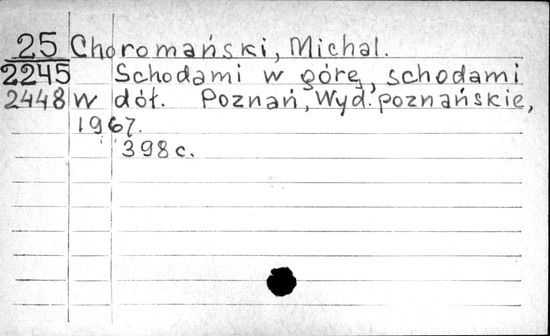 25 Choromański, Michal.
2245 Schodami w górę, schodami
2448 w dół. Poznań, Wyd. poznańskie,
1967.
398 c.